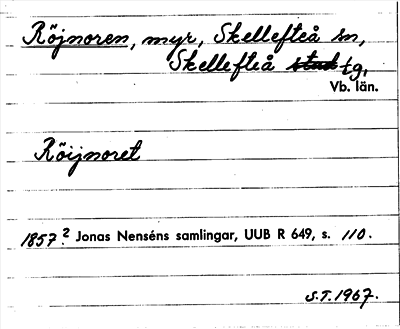 Röjnoren, myr, Skellefteå sn,
Skellefteå stad tg,
Vb. län.
Röijnoret
1857.² Jonas Nenséns samlingar, UUB R 649, s. 110.
S.T. 1967.